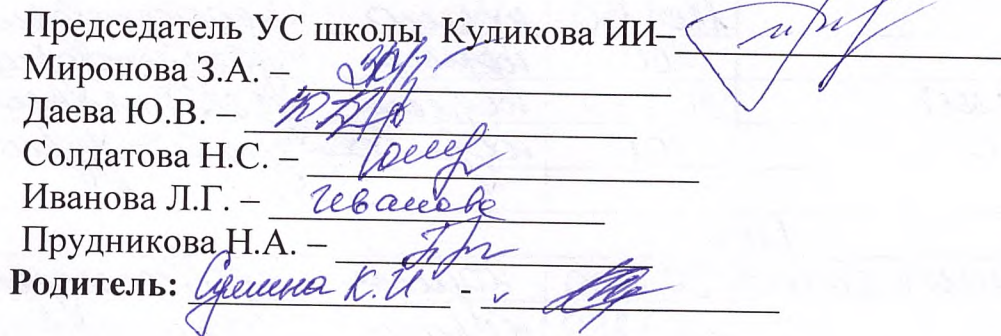 Председатель УС школы Куликова ИИ–
Миронова З.А. –
Даева Ю.В. –
Солдатова Н.С. –
Иванова Л.Г. – Иванова
Прудникова Н.А. –
Родитель: К.И -